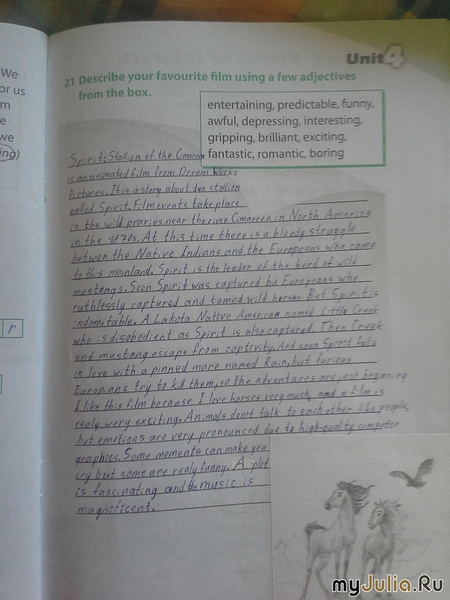 We
or us
m
e
we
ing)
r
Unit 4
21 Describe your favourite film using a few adjectives
from the box.
entertaining, predictable, funny,
awful, depressing, interesting,
gripping, brilliant, exciting,
fantastic, romantic, boring
Spirit: Stallion of the Cimarron
is an animated film from Dream Works
Pictures. It is a story about dun stallion
called Spirit. Film events take place
in the wild praries near the river Cimarron in North America
in the 1870s. At this time there is a bloody struggle
betwen the Native Indians and the Europeans who came
to this mainland. Spirit is the leader of the herd of wild
mustangs. Soon Spirit was captured by Europeans who
ruthlessly captured and tamed wild horses. But Spirit is
indomitable. A Lakota Native American named Little Creek
who is disobedient as Spirit is also captured. Then Creek
and mustang escape from captivity. And soon Spirit falls
in love with a pinned mare named Rain, but furious
Europians try to kill them, so the adventures are just beginning
I like this film because I love horses very much, and a film is
realy wery exciting. Animals don't talk to each other like people,
but emotions are very pronounced due to high-quality computer
graphics. Some moments can make you
cry but some are realy funny. A plot
is fascinating and the music is
magnificent.
myJulia.Ru